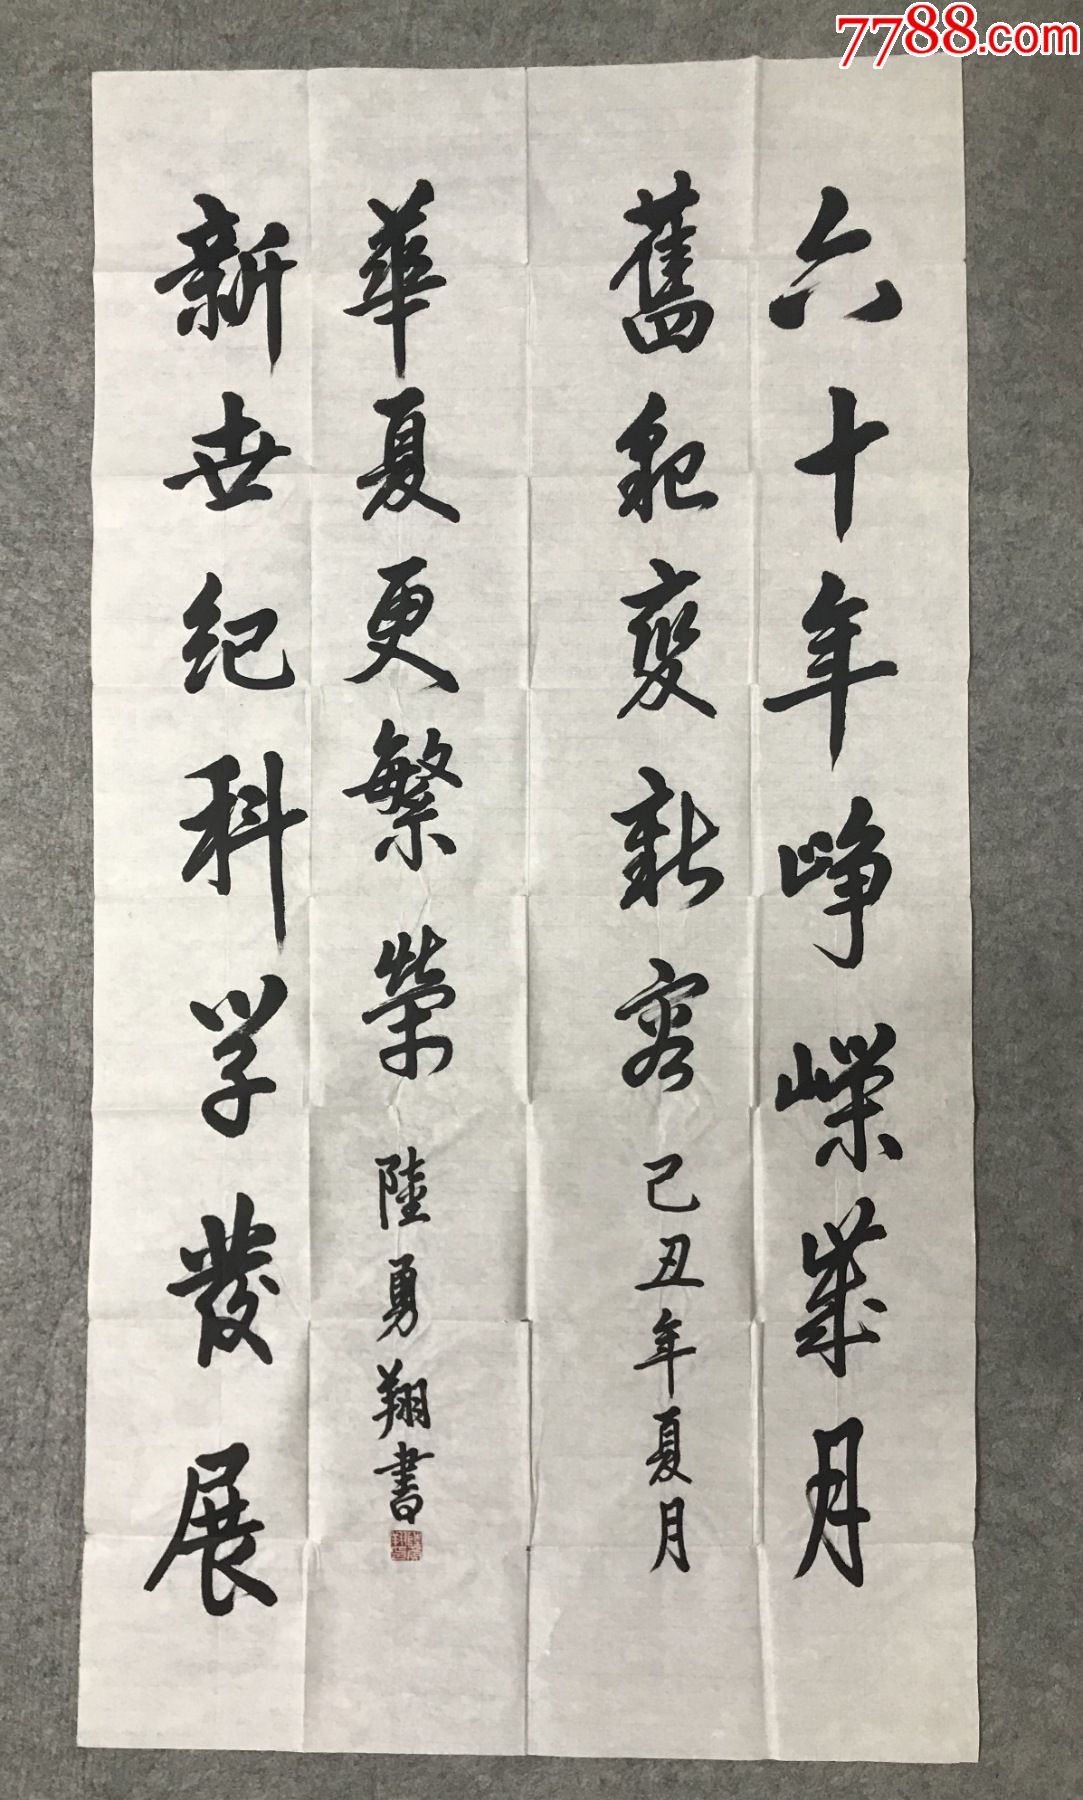 7788.com
六十年峥嶸歲月
舊貌變新容
己丑年夏月
新世纪科学發展
華夏更繁榮
陸勇翔書